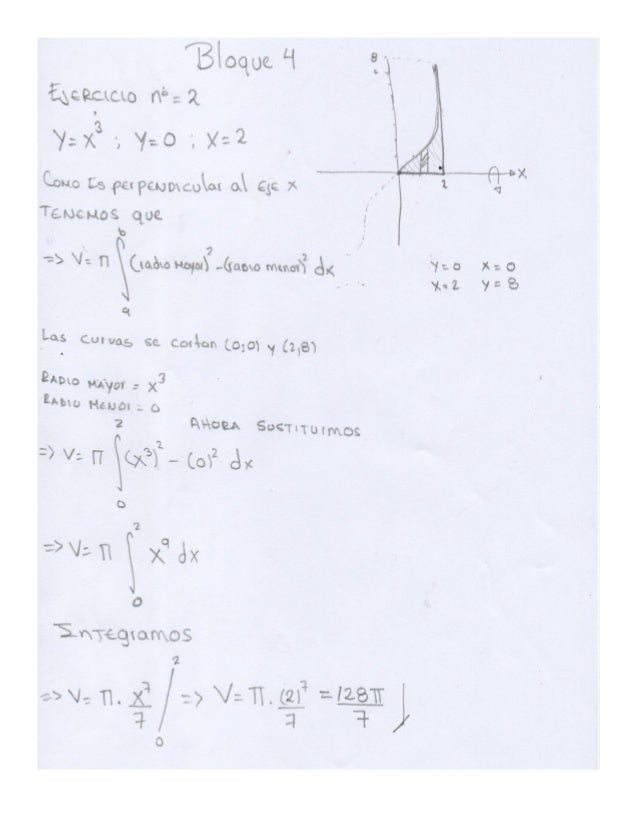 Bloque 4
Ejercicio nº = 2
Y=x³ ; Y=0 ; X=2
Como Es perpendicular al Eje x
Tenemos que
=> V= π ∫ₐᵇ (radio Mayor)² - (radio menor)² dx
8
2
X
Y=0 X=0
X=2 Y=8
Las curvas se cortan (0;0) y (2,8)
Radio Mayor = x³
Radio Menor = 0
Ahora sustituimos
=> V= π ∫₀² (x³)² - (0)² dx
=> V= π ∫₀² x⁹ dx
Integramos
=> V= π. x⁷/7 /₀² => V= π. (2)⁷/7 = 128π/7